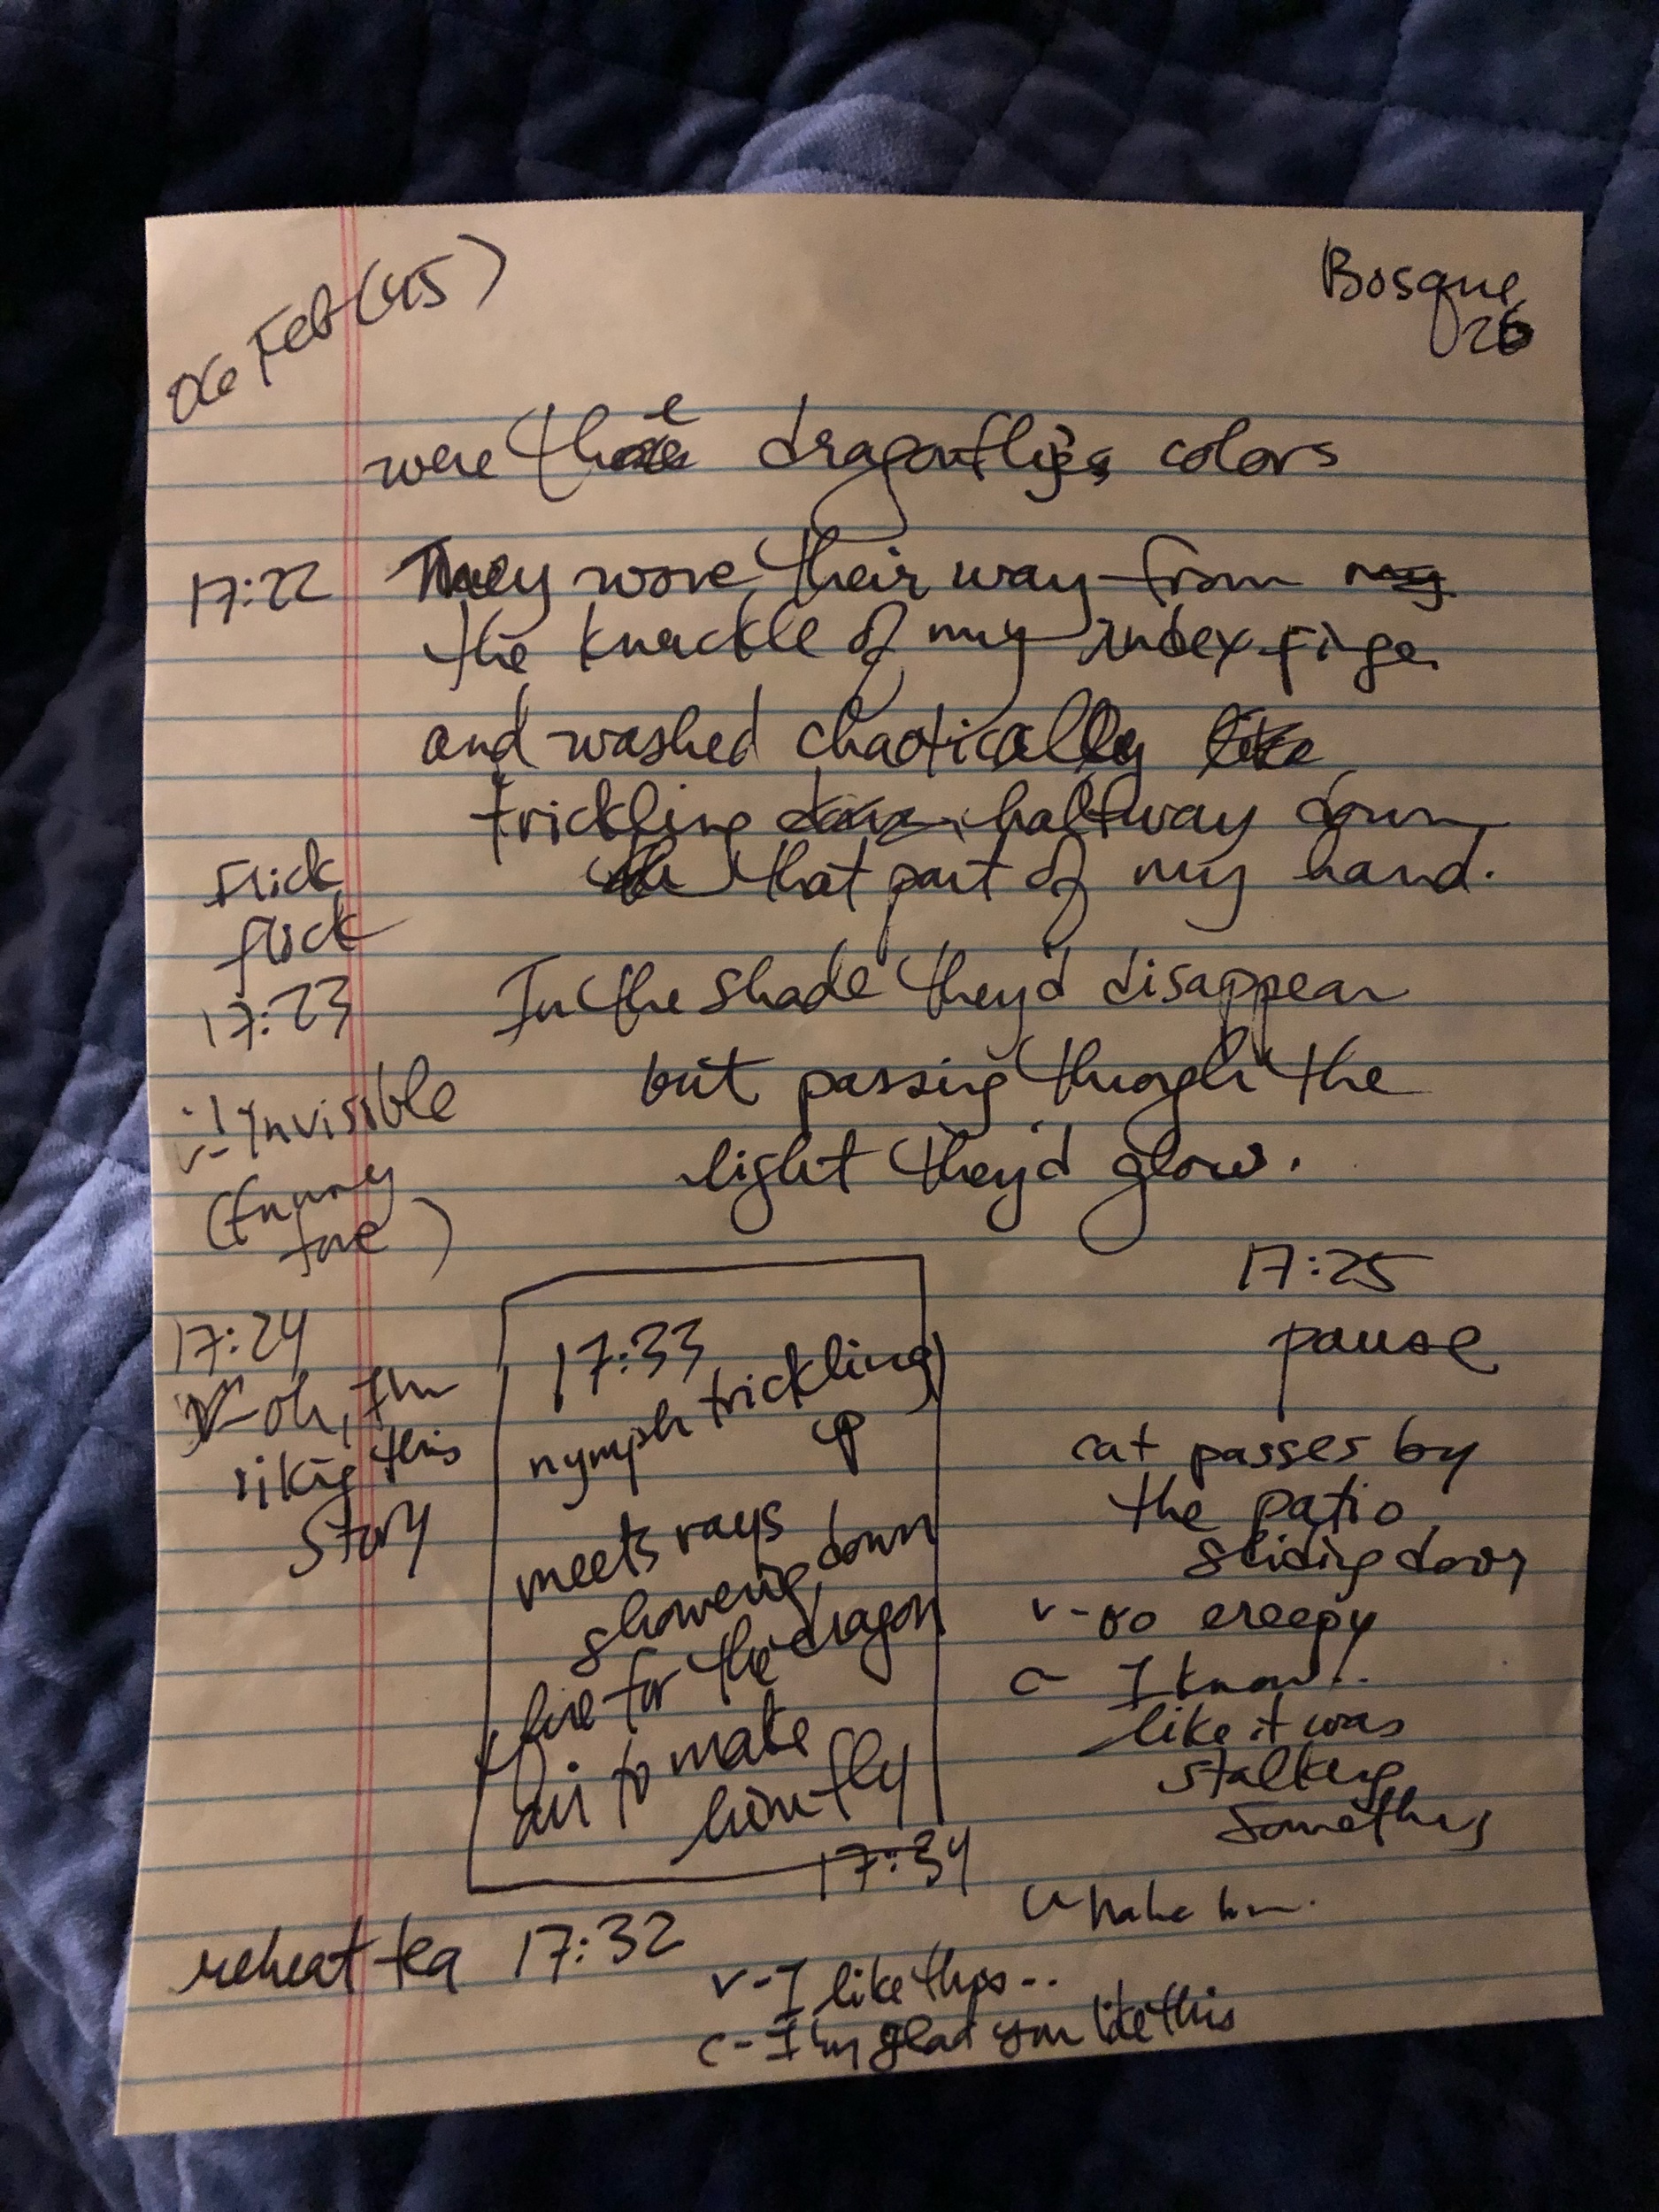 06 Feb (45)
Bosque
26
were these dragonflies colors
17:22 They wove their way from my
the knuckle of my index finge
and washed chaotically like
trickling down halfway down
the that part of my hand.
flick
17:23
In the shade they'd disappear
but passing though the
light they'd glow.
v- invisible
(funny
tone)
17:24
v- oh, I'm
liking this
story
17:33
nymph trickling
up
meets rays
showering down
fire for the dragon
air to make
him fly
17:34
17:25
pause
cat passes by
the patio
sliding door
v- oo creepy
c- I know..
like it was
stalking
something
reheat tea 17:32
v- I like this..
c- I'm glad you like this